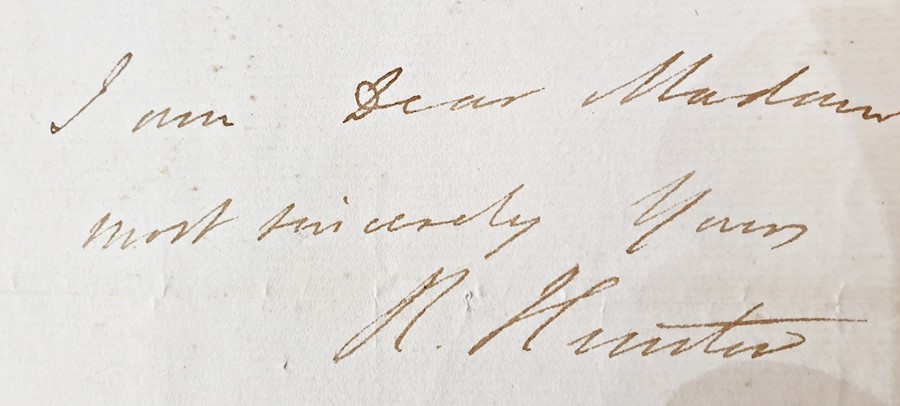 I am Dear Madam
most sincerely Yours
R. Hunter